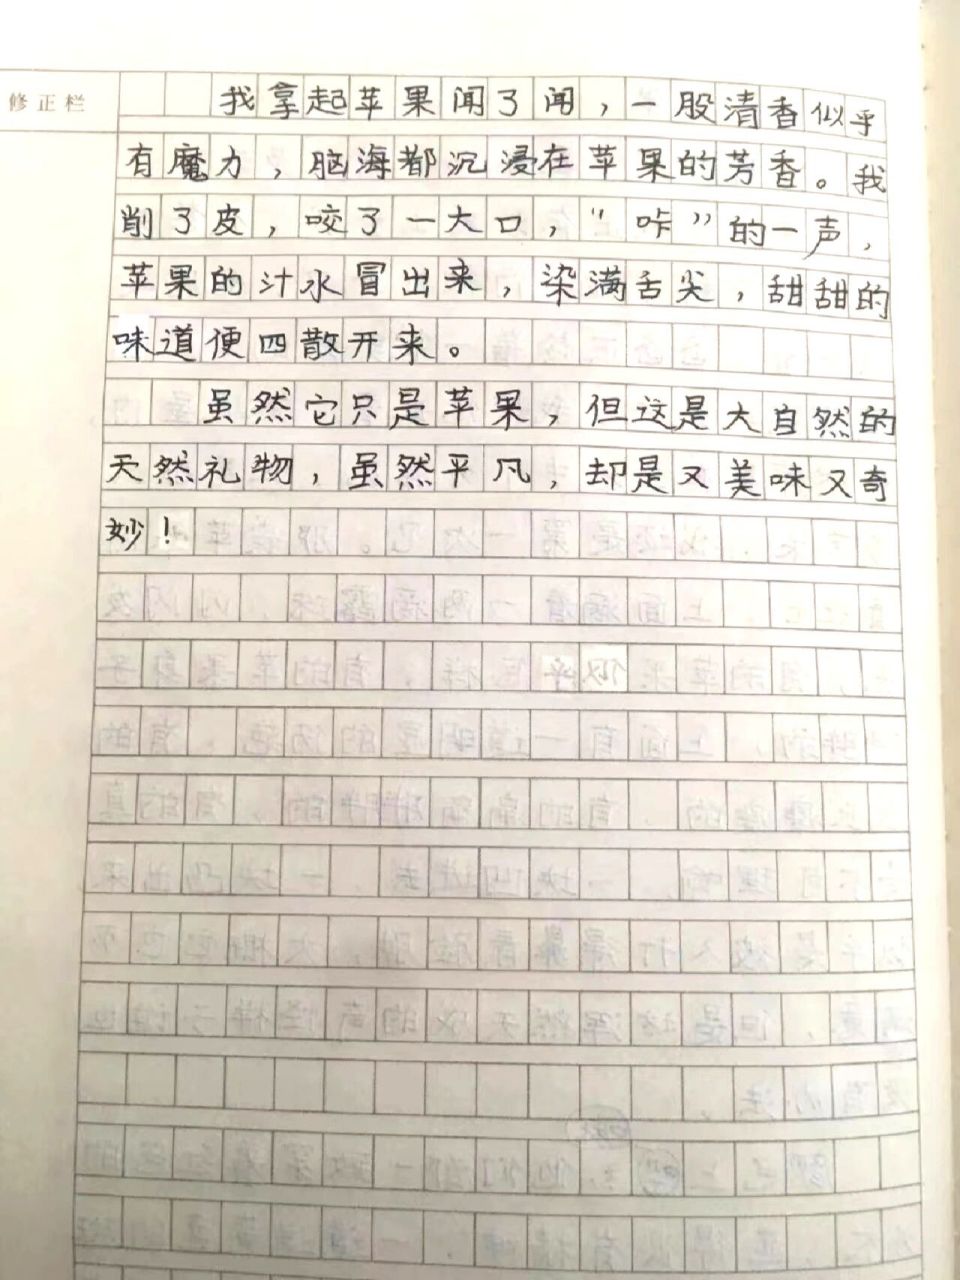 修正栏
我拿起苹果闻了闻，一股清香似乎
有魔力，脑海都沉浸在苹果的芳香。我
削了皮，咬了一大口，“咔”的一声，
苹果的汁水冒出来，染满舌尖，甜甜的
味道便四散开来。
虽然它只是苹果，但这是大自然的
天然礼物，虽然平凡，却是又美味又奇
妙！